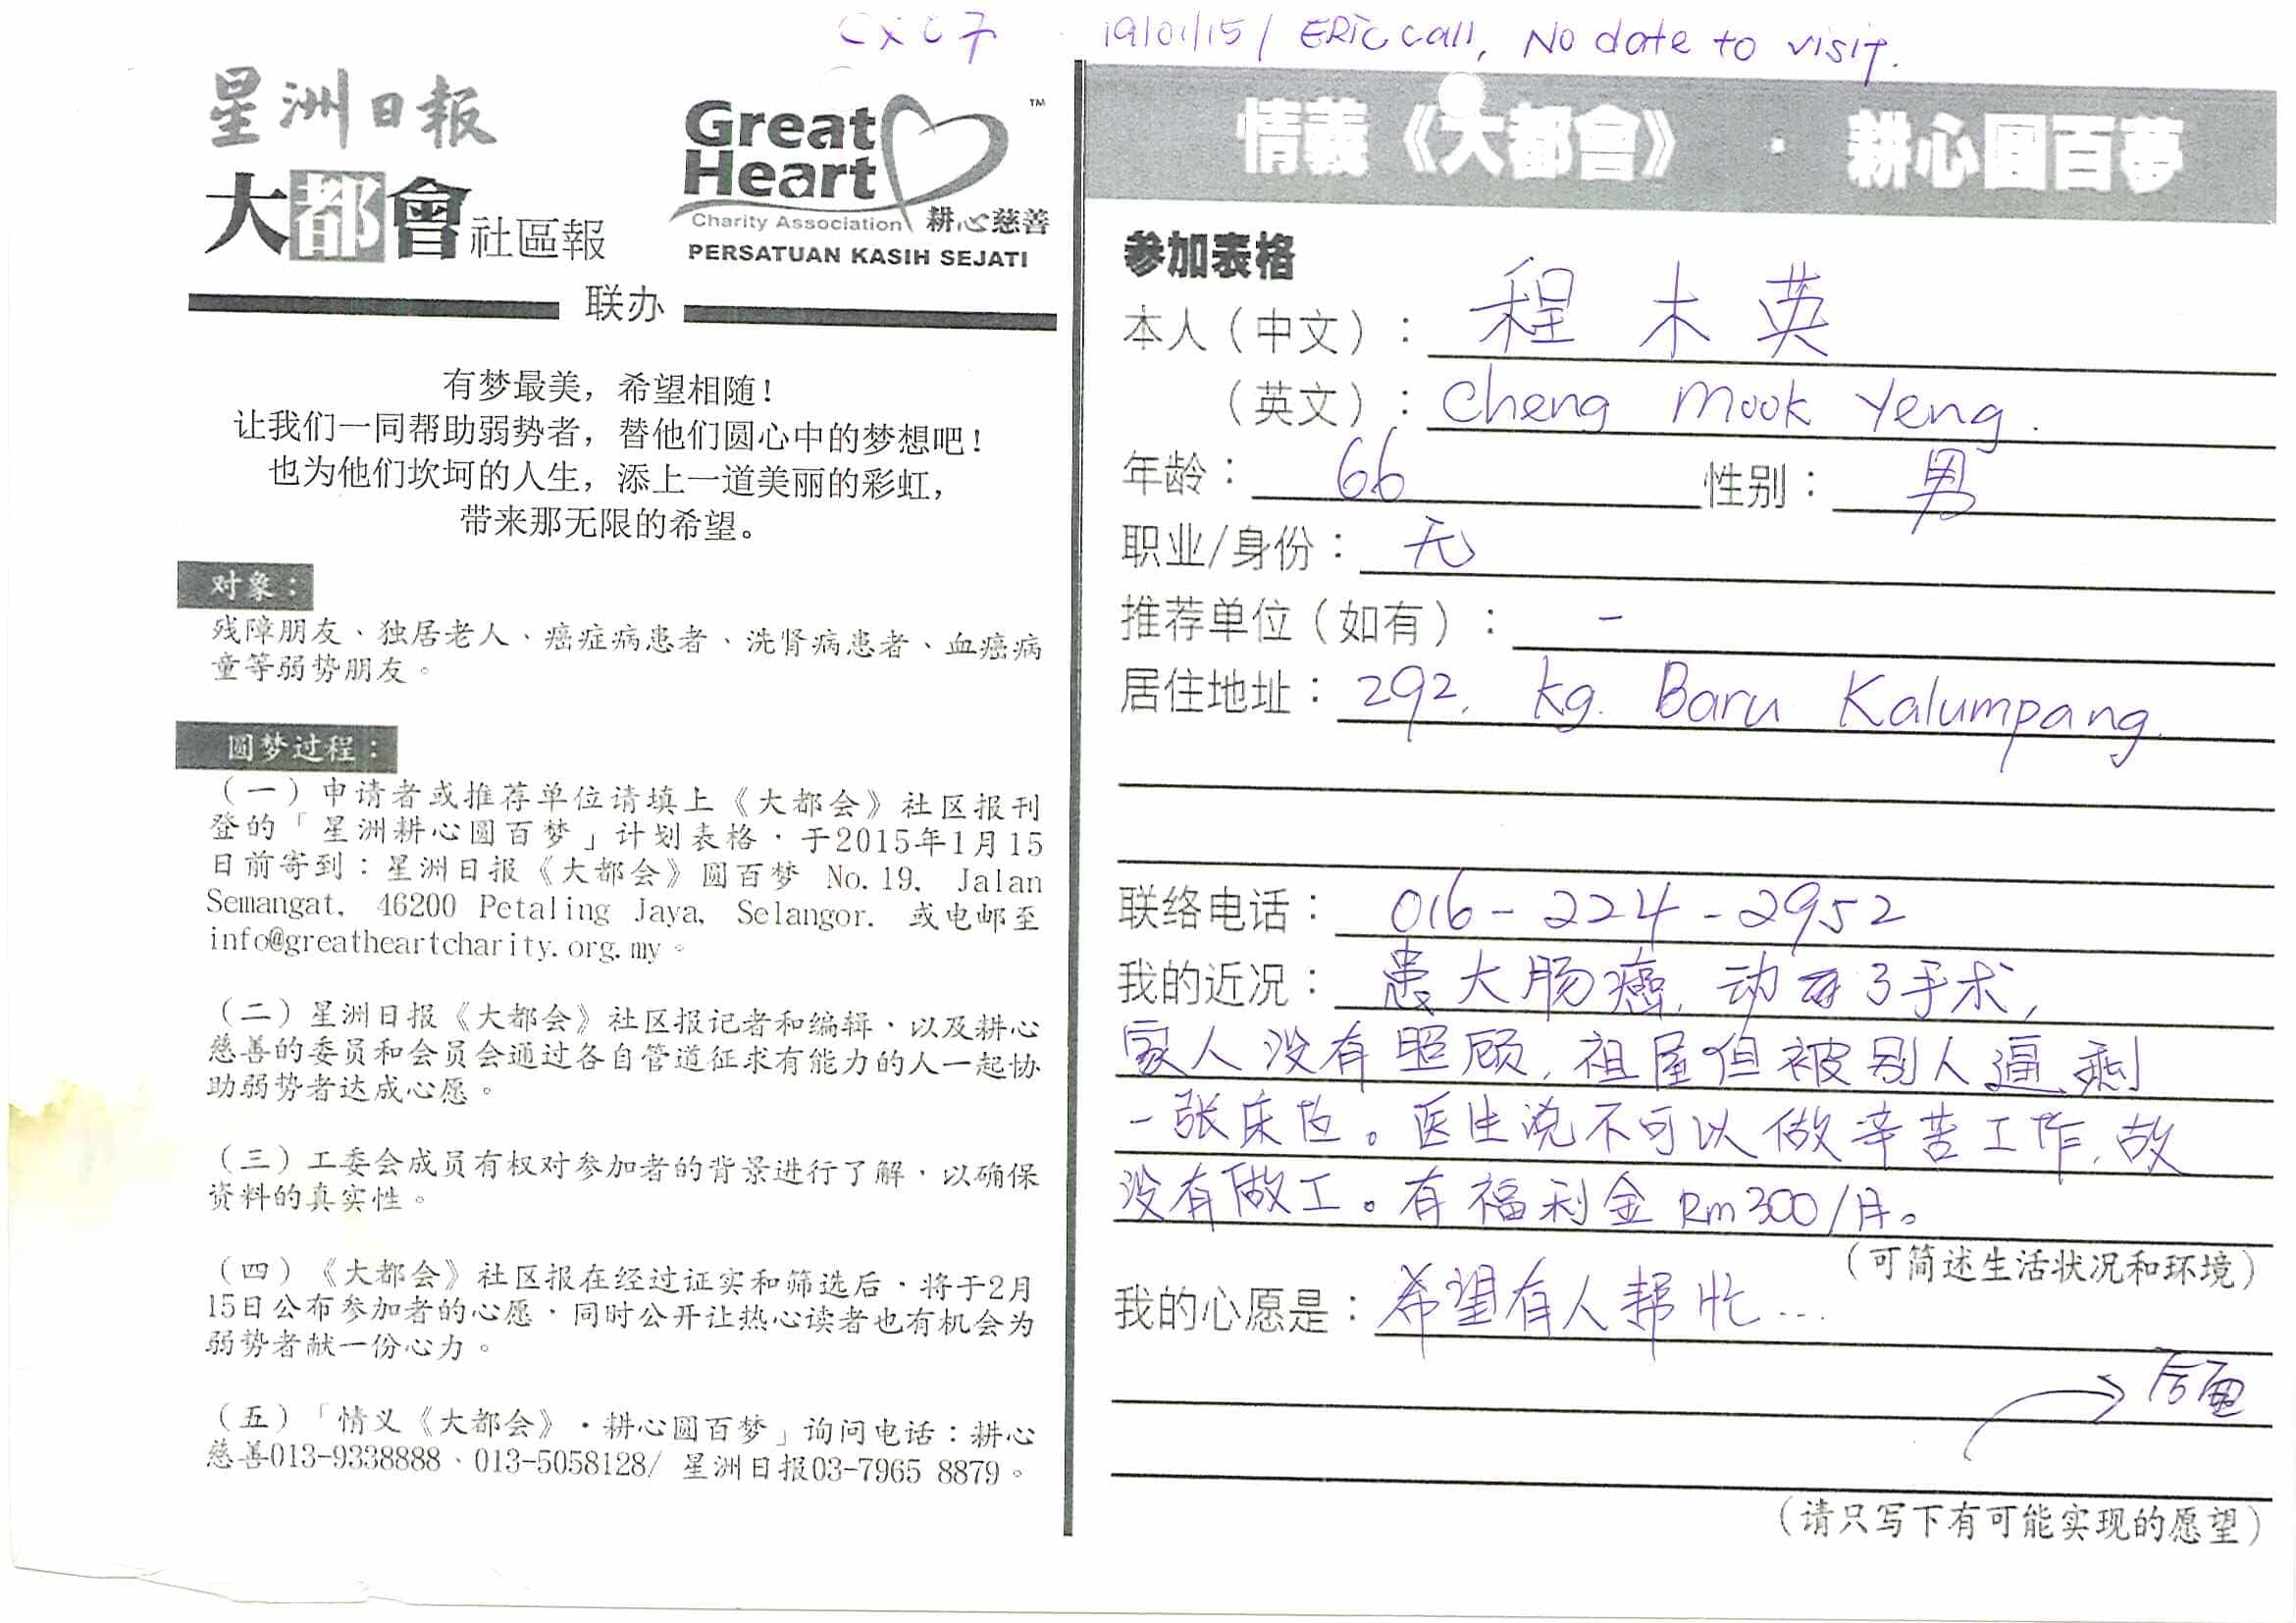 19/01/15 / ERic call, No date to visit.
星洲日报
大都會社區報
Great Heart
Charity Association 耕心慈善
PERSATUAN KASIH SEJATI
TM
联办
有梦最美，希望相随！
让我们一同帮助弱势者，替他们圆心中的梦想吧！
也为他们坎坷的人生，添上一道美丽的彩虹，
带来那无限的希望。
对象：
残障朋友、独居老人、癌症病患者、洗肾病患者、血癌病
童等弱势朋友。
圆梦过程：
（一）申请者或推荐单位请填上《大都会》社区报刊
登的「星洲耕心圆百梦」计划表格，于2015年1月15
日前寄到：星洲日报《大都会》圆百梦 No.19, Jalan
Semangat, 46200 Petaling Jaya, Selangor. 或电邮至
info@greatheartcharity.org.my。
（二）星洲日报《大都会》社区报记者和编辑，以及耕心
慈善的委员和会员会通过各自管道征求有能力的人一起协
助弱势者达成心愿。
（三）工委会成员有权对参加者的背景进行了解，以确保
资料的真实性。
（四）《大都会》社区报在经过证实和筛选后，将于2月
15日公布参加者的心愿，同时公开让热心读者也有机会为
弱势者献一份心力。
（五）「情义《大都会》·耕心圆百梦」询问电话：耕心
慈善013-9338888、013-5058128/ 星洲日报03-7965 8879。
情義《大都會》 · 耕心圓百夢
参加表格
本人（中文）：程木英
（英文）：Cheng Mook Yeng.
年龄：66 性别：男
职业/身份：无
推荐单位（如有）：-
居住地址：292, Kg. Baru Kalumpang.
联络电话：016-224-2952
我的近况：患大肠癌，动了手术，
家人没有照顾，祖屋但被别人逼剩
一张床位。医生说不可以做辛苦工作，故
没有做工。有福利金 Rm300/月。
（可简述生活状况和环境）
我的心愿是：希望有人帮忙...
后面
（请只写下有可能实现的愿望）